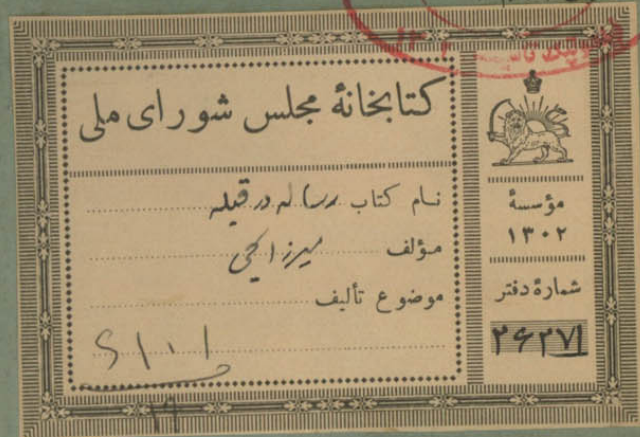 کتابخانهٔ مجلس شورای ملی
نام کتاب رساله در قبله
مؤلف میرزا
موضوع تألیف
مؤسسهٔ
۱۳۰۲
شمارهٔ دفتر
۲۶۲۷۱
۱۹